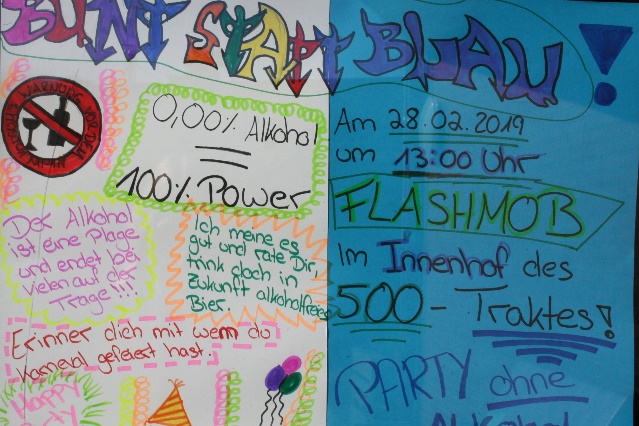 BUNT STATT BLAU!
0,00% Alkohol
100% Power
Der Alkohol
ist eine Plage
und endet bei
vielen auf der
Trage!!!
Ich meine es
gut und rate Dir,
trink doch in
Zukunft alkoholfreies
Bier.
Erinner dich mit wem du
Karneval gefeiert hast.
Happy
Party
Am 28.02.2019
um 13:00 Uhr
FLASHMOB
Im Innenhof des
500-Traktes!
PARTY ohne
Alkohol